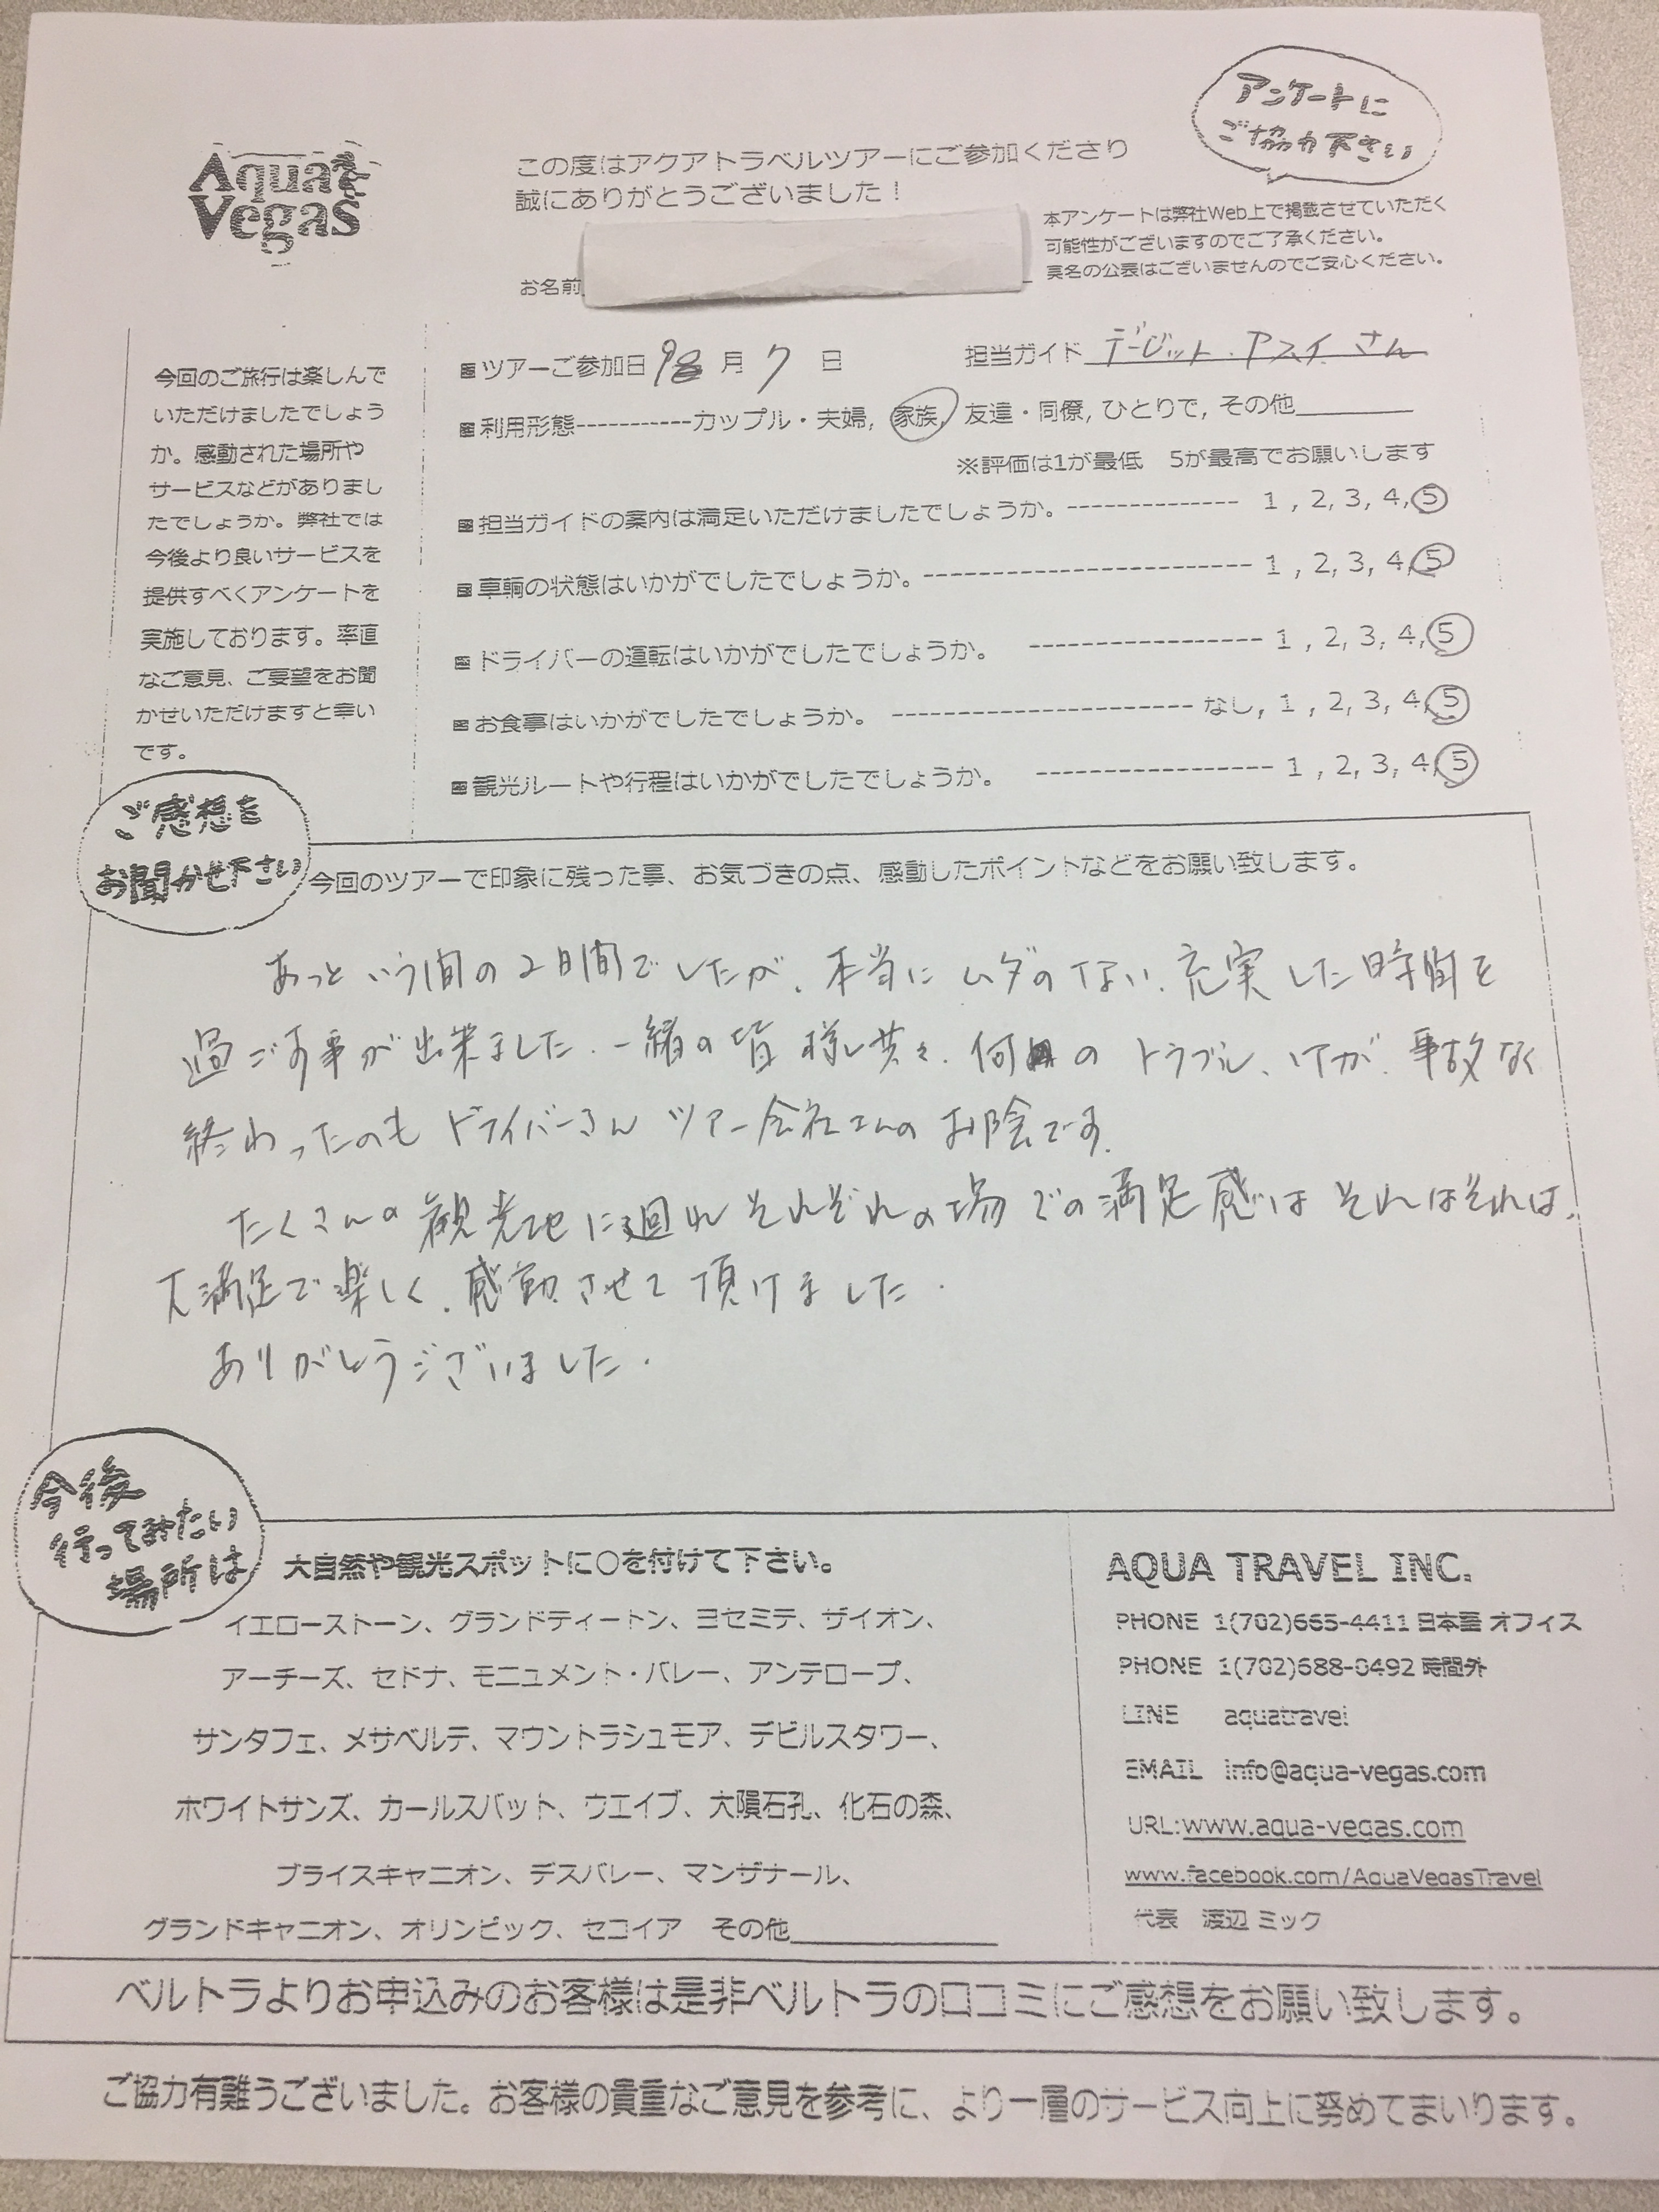 アンケートに
ご協力下さい
Aqua
Vegas
この度はアクアトラベルツアーにご参加くださり
誠にありがとうございました！
本アンケートは弊社Web上で掲載させていただく
可能性がございますのでご了承ください。
実名の公表はございませんのでご安心ください。
お名前
今回のご旅行は楽しんで
いただけましたでしょう
か。感動された場所や
サービスなどがありまし
たでしょうか。弊社では
今後より良いサービスを
提供すべくアンケートを
実施しております。率直
なご意見、ご要望をお聞
かせいただけますと幸い
です。
■ツアーご参加日 月 7 日 担当ガイド デービット・アスイ さん
■利用形態-----------カップル・夫婦, 家族, 友達・同僚, ひとりで, その他
※評価は1が最低 5が最高でお願いします
■担当ガイドの案内は満足いただけましたでしょうか。------------- 1 , 2, 3, 4, 5
■車輌の状態はいかがでしたでしょうか。------------------------- 1 , 2, 3, 4, 5
■ドライバーの運転はいかがでしたでしょうか。 ---------------- 1 , 2, 3, 4, 5
■お食事はいかがでしたでしょうか。 --------------------- なし, 1 , 2, 3, 4, 5
■観光ルートや行程はいかがでしたでしょうか。 ---------------- 1 , 2, 3, 4, 5
ご感想を
お聞かせ下さい
今回のツアーで印象に残った事、お気づきの点、感動したポイントなどをお願い致します。
あっという間の2日間でしたが、本当にムダのない、充実した時間を
過ごす事が出来ました。一緒の皆様と共々、何の トラブル、ケガ、事故なく
終わったのも ドライバーさん ツアー会社さんの お陰です。
たくさんの観光地に廻れ それぞれの場での満足感は それはそれは、
大満足で楽しく、感動させて頂けました。
ありがとうございました。
今後
行ってみたい
場所は
大自然や観光スポットに○を付けて下さい。
イエローストーン、グランドティートン、ヨセミテ、ザイオン、
アーチーズ、セドナ、モニュメント・バレー、アンテロープ、
サンタフェ、メサベルデ、マウントラシュモア、デビルスタワー、
ホワイトサンズ、カールスバット、ウエイブ、大隕石孔、化石の森、
ブライスキャニオン、デスバレー、マンザナール、
グランドキャニオン、オリンピック、セコイア その他
AQUA TRAVEL INC.
PHONE 1(702)665-4411 日本語 オフィス
PHONE 1(702)688-0492 時間外
LINE aquatravel
EMAIL info@aqua-vegas.com
URL:www.aqua-vegas.com
www.facebook.com/AquaVegasTravel
代表 渡辺 ミック
ベルトラよりお申込みのお客様は是非ベルトラの口コミにご感想をお願い致します。
ご協力有難うございました。お客様の貴重なご意見を参考に、より一層のサービス向上に努めてまいります。